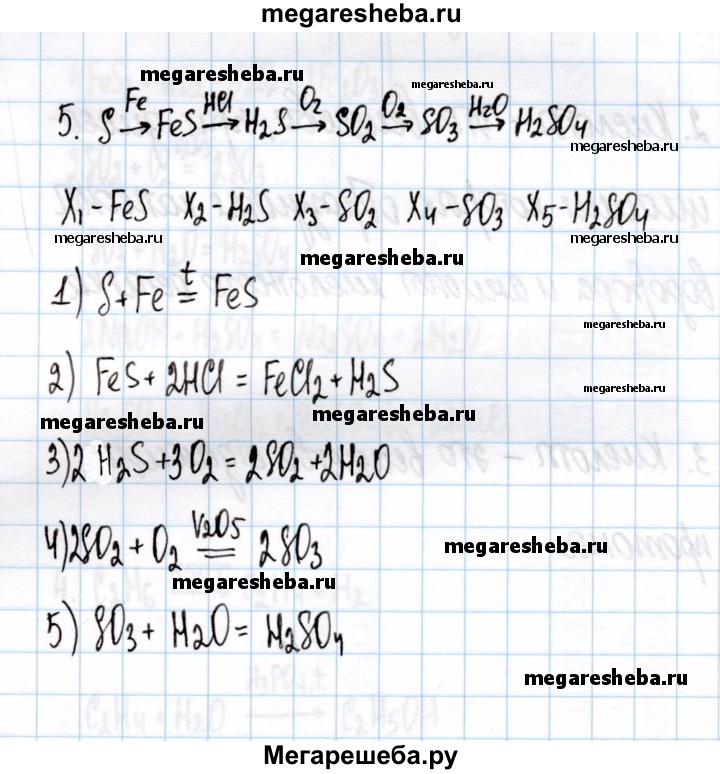 megaresheba.ru
megaresheba.ru
megaresheba.ru
5. S Fe→ FeS HCl→ H2S O2→ SO2 O2→ SO3 H2O→ H2SO4
megaresheba.ru
X1-FeS X2-H2S X3-SO2 X4-SO3 X5-H2SO4
megaresheba.ru megaresheba.ru
megaresheba.ru
1) S+Fe t= FeS
megaresheba.ru
2) FeS+2HCl = FeCl2+H2S
megaresheba.ru
megaresheba.ru megaresheba.ru
3)2H2S+3O2=2SO2+2H2O
4)2SO2+O2 V2O5= 2SO3
megaresheba.ru
megaresheba.ru
5) SO3+ H2O= H2SO4
megaresheba.ru
Мегарешеба.ру